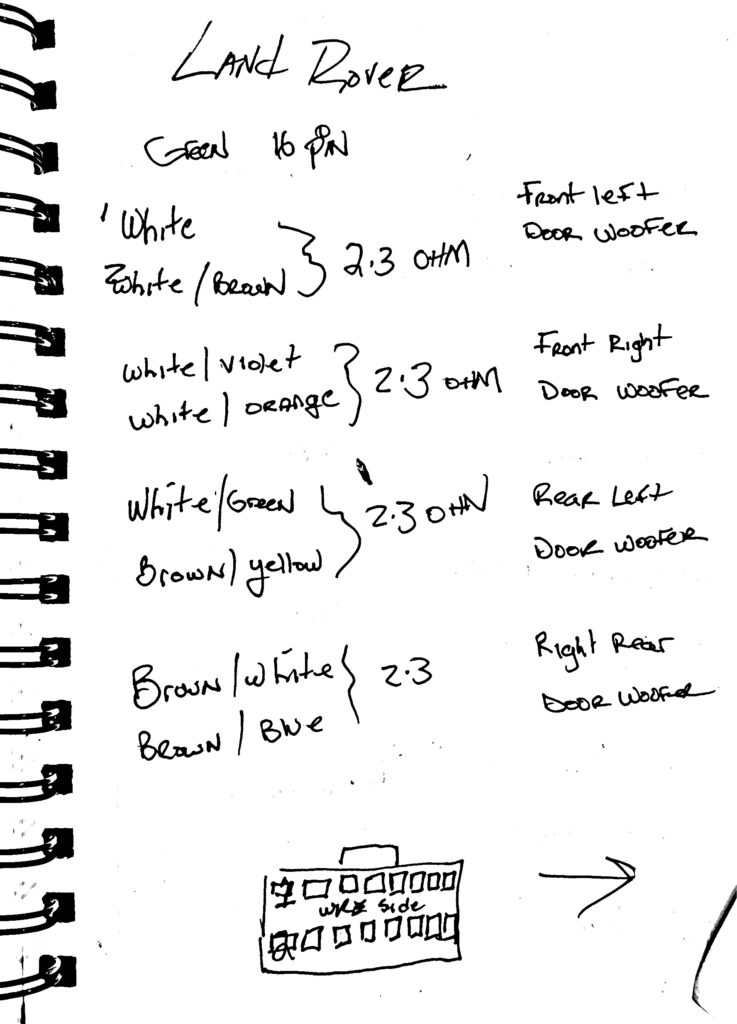 LAND ROVER
GREEN 16 PIN
1 White
2 White / BROWN
2.3 OHM
Front left
DOOR WOOFER
white / violet
white / ORANGE
2.3 OHM
Front Right
DOOR WOOFER
White / GREEN
BROWN / yellow
2.3 OHM
REAR LEFT
DOOR WOOFER
BROWN / white
BROWN / Blue
2.3
Right Rear
DOOR WOOFER
1
WIRE Side
2